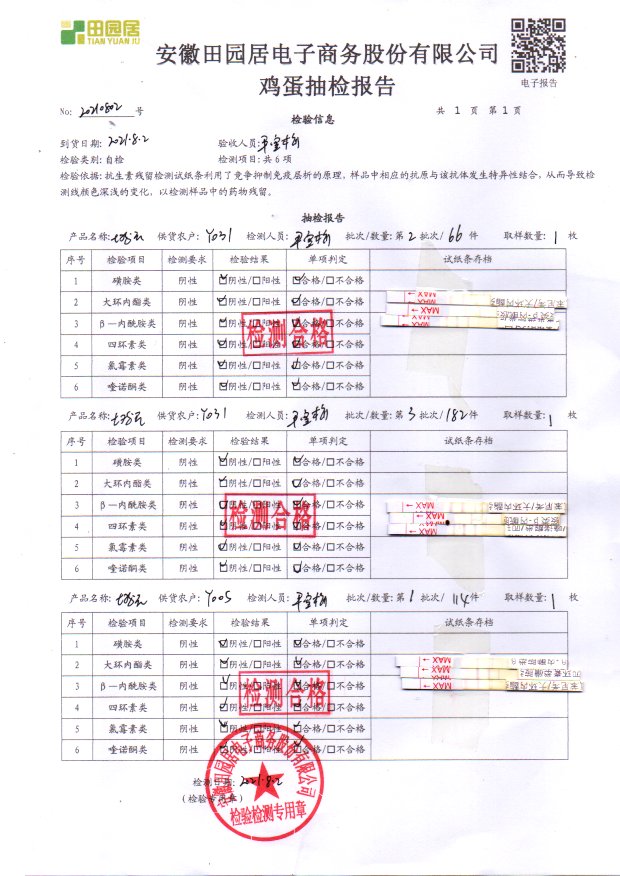 田园居
TIAN YUAN JU
安徽田园居电子商务股份有限公司
鸡蛋抽检报告
电子报告
No: 20210802 号
共 1 页 第 1 页
检验信息
到货日期: 2021.8.2 验收人员:
检验类别: 自检 检测项目: 共 6 项
检验依据: 抗生素残留检测试纸条利用了竞争抑制免疫层析的原理, 样品中相应的抗原与该抗体发生特异性结合, 从而导致检
测线颜色深浅的变化, 以检测样品中的药物残留。
抽检报告
产品名称: 供货农户: Y031 检测人员: 批次/数量: 第 2 批次/ 66 件 取样数量: 1 枚
序号 检验项目 检测要求 检验结果 单项判定 试纸条存档
1 磺胺类 阴性 ☑阴性/☐阳性 ☑合格/☐不合格
2 大环内酯类 阴性 ☑阴性/☐阳性 ☑合格/☐不合格
3 β—内酰胺类 阴性 ☑阴性/☐阳性 ☑合格/☐不合格
4 四环素类 阴性 ☑阴性/☐阳性 ☑合格/☐不合格
5 氯霉素类 阴性 ☑阴性/☐阳性 ☑合格/☐不合格
6 喹诺酮类 阴性 ☑阴性/☐阳性 ☑合格/☐不合格
检测合格
MAX
MAX
MAX
产品名称: 供货农户: Y031 检测人员: 批次/数量: 第 3 批次/ 182 件 取样数量: 1 枚
序号 检验项目 检测要求 检验结果 单项判定 试纸条存档
1 磺胺类 阴性 ☑阴性/☐阳性 ☑合格/☐不合格
2 大环内酯类 阴性 ☑阴性/☐阳性 ☑合格/☐不合格
3 β—内酰胺类 阴性 ☑阴性/☐阳性 ☑合格/☐不合格
4 四环素类 阴性 ☑阴性/☐阳性 ☑合格/☐不合格
5 氯霉素类 阴性 ☑阴性/☐阳性 ☑合格/☐不合格
6 喹诺酮类 阴性 ☑阴性/☐阳性 ☑合格/☐不合格
检测合格
MAX
MAX
产品名称: 供货农户: Y005 检测人员: 批次/数量: 第 1 批次/ 114 件 取样数量: 1 枚
序号 检验项目 检测要求 检验结果 单项判定 试纸条存档
1 磺胺类 阴性 ☑阴性/☐阳性 ☑合格/☐不合格
2 大环内酯类 阴性 ☑阴性/☐阳性 ☑合格/☐不合格
3 β—内酰胺类 阴性 ☑阴性/☐阳性 ☑合格/☐不合格
4 四环素类 阴性 ☑阴性/☐阳性 ☑合格/☐不合格
5 氯霉素类 阴性 ☑阴性/☐阳性 ☑合格/☐不合格
6 喹诺酮类 阴性 ☑阴性/☐阳性 ☑合格/☐不合格
检测合格
MAX
MAX
MAX
检测日期: 2021.8.2
(检验专用章)
安徽田园居电子商务股份有限公司
检验检测专用章